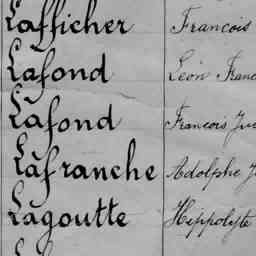 Lafficher Francois
Lafond Léon Franc
Lafond Francois Ju
Lafranche Adolphe J
Lagoutte Hippolyte